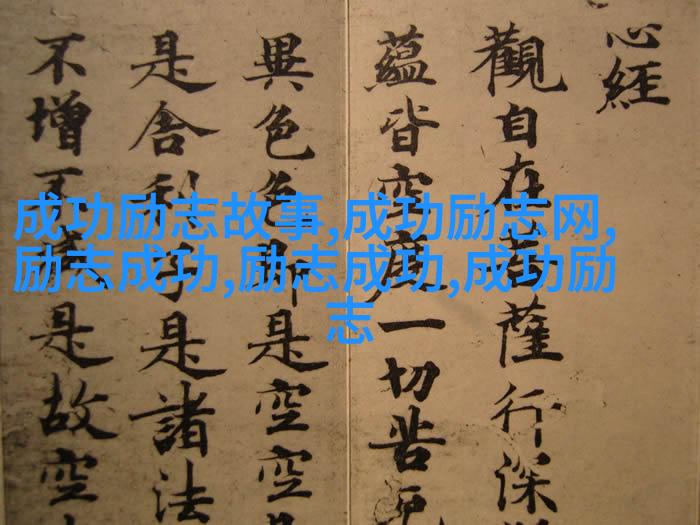 成功励志故事,成功励志网,
励志成功,励志成功,成功励
志
心經
觀自在菩薩行深
蘊皆空度一切苦厄
異色色即是空空
是舍利子是諸法
不增不是故空